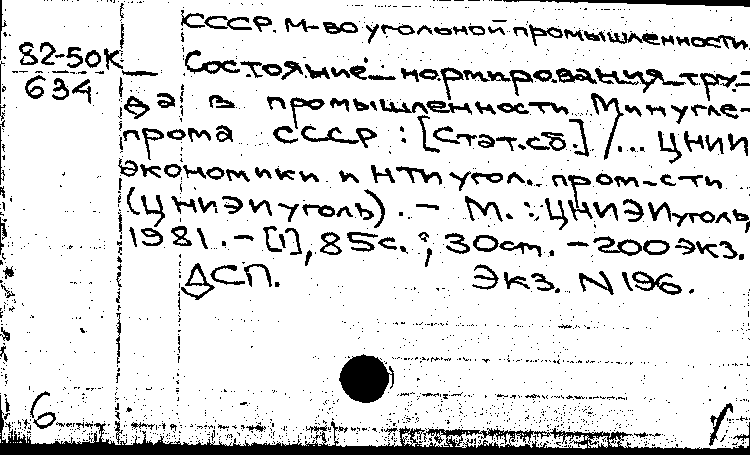 СССР. М-во угольной промышленности.
82-50К
634
Состояние нормирования тру-
да в промышленности Минугле-
прома СССР : [Стат.сб.] /... ЦНИИ
экономики и НТИ угол. пром-сти
(ЦНИЭИуголь). – М. : ЦНИЭИуголь,
1981. – [1], 85 с. ; 30 см. – 200 экз.
ДСП. Экз. N 196.
6